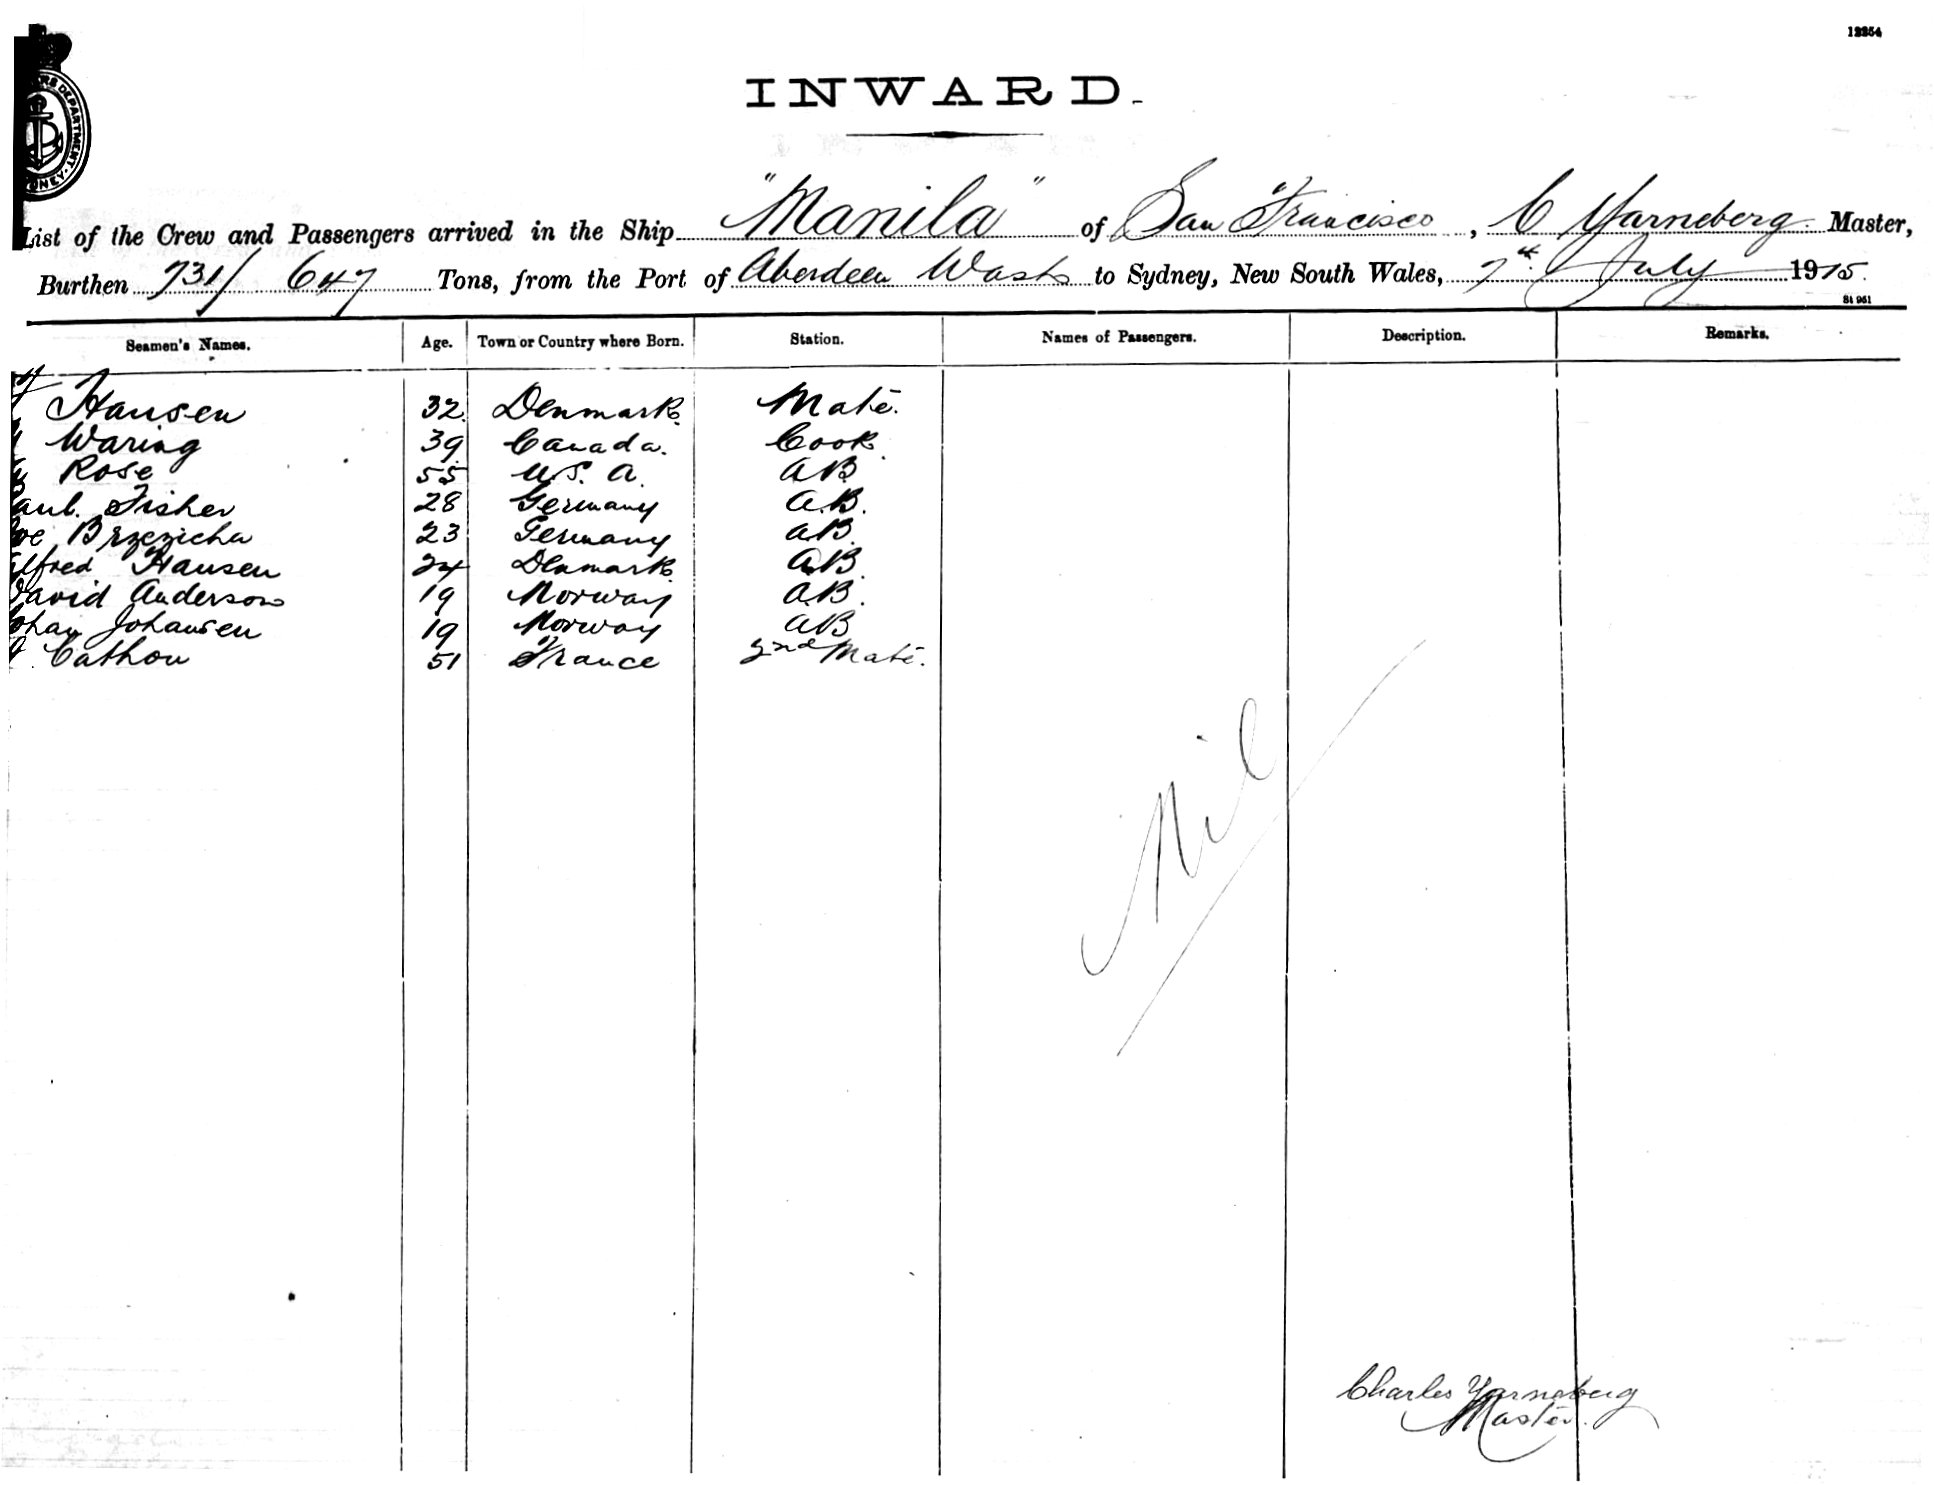 12254
INWARD.
List of the Crew and Passengers arrived in the Ship "Manila" of San Francisco, C Yarneberg Master,
Burthen 731/ 647 Tons, from the Port of Aberdeen Wash to Sydney, New South Wales, 7th July 1915.
St 961
Seamen's Names. Age. Town or Country where Born. Station. Names of Passengers. Description. Remarks.
Hansen 32 Denmark. Mate.
Waring 39 Canada. Cook.
Rose 55 U.S.A. AB
aul. Fisher 28 Germany A.B.
Brzezicha 23 Germany A.B.
lfred Hansen 24 Denmark A.B.
David Anderson 19 Norway A.B.
ohan Johansen 19 Norway AB
Cathou 51 France 2nd Mate.
Nil
Charles Yarneberg
Master.